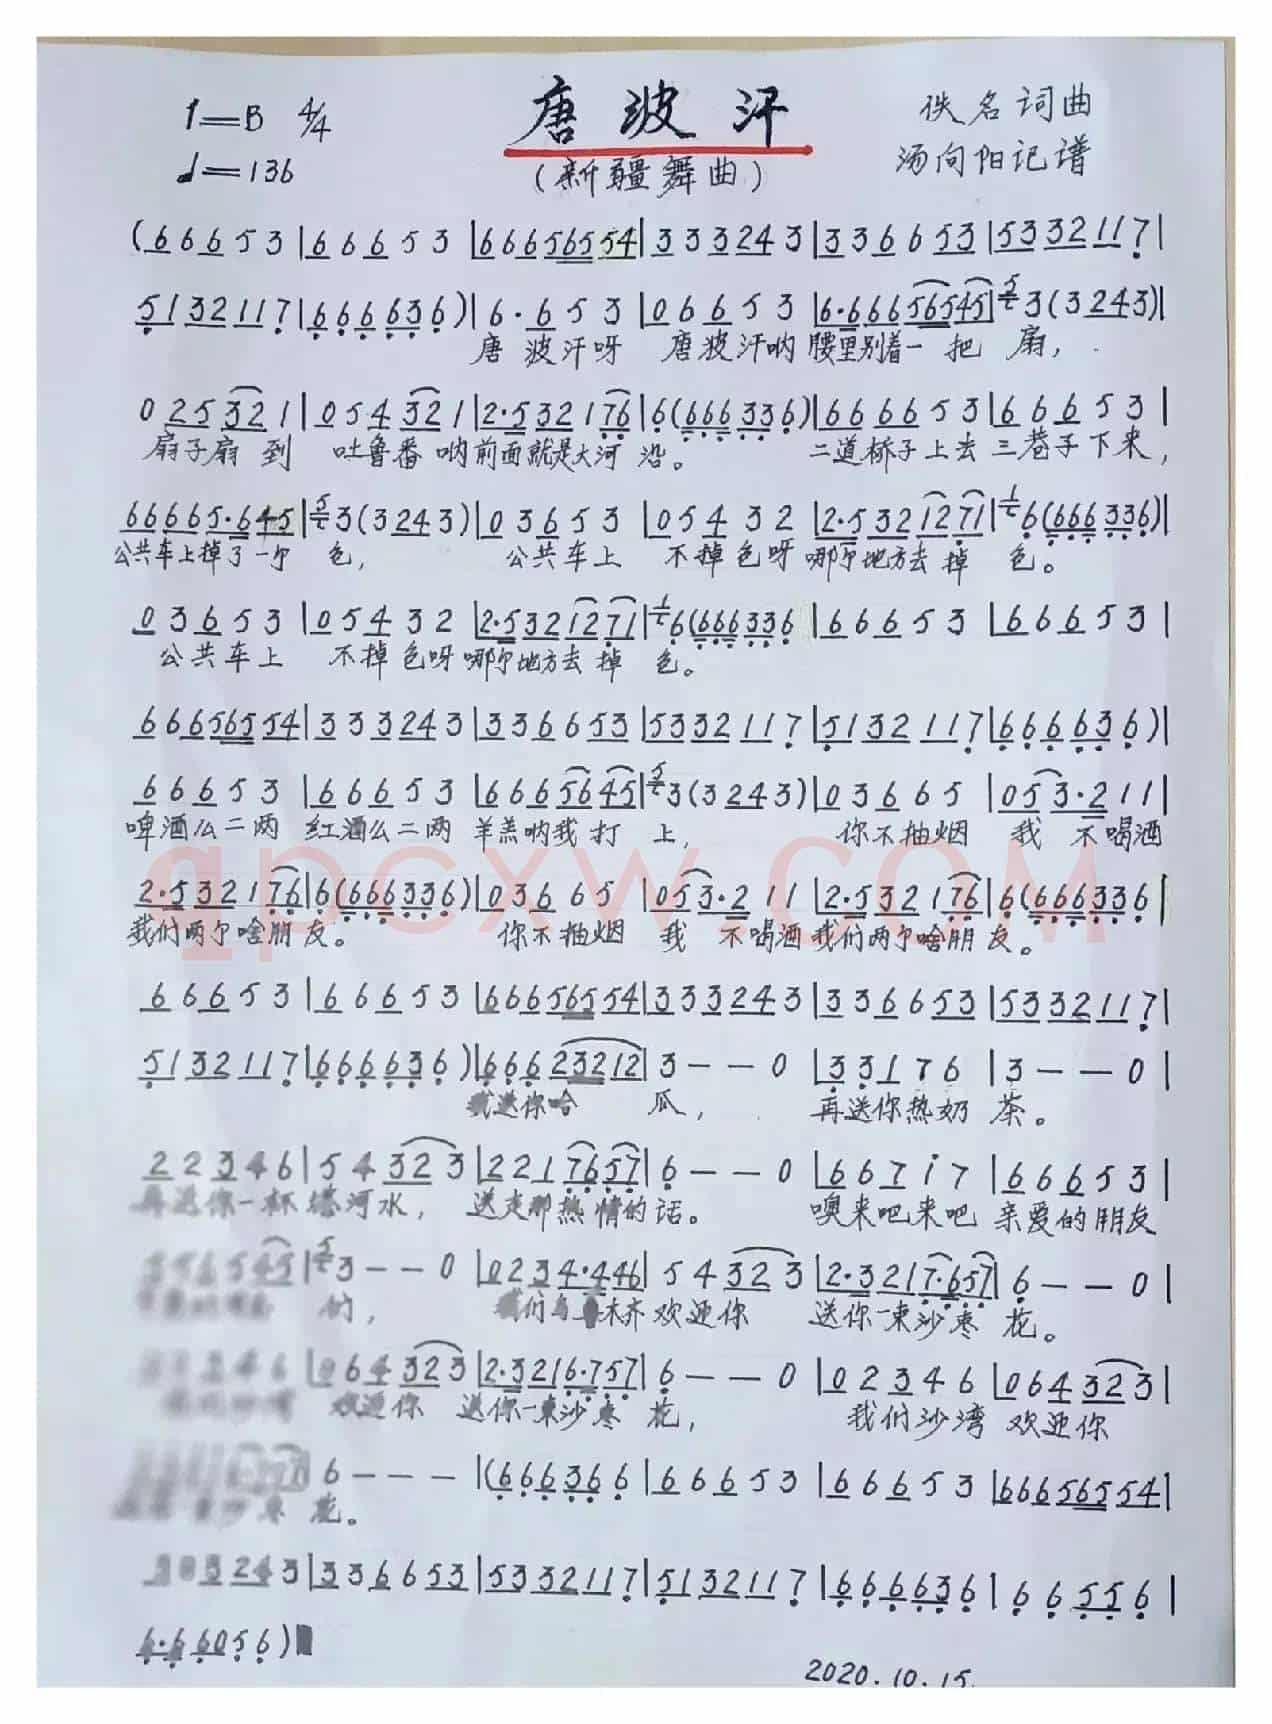 1=B 4/4
唐波汗
佚名词曲
♩=136
(新疆舞曲)
汤向阳记谱
(6 6 6 5 3 | 6 6 6 5 3 | 6 6 6 5 6 5 5 4 | 3 3 3 2 4 3 | 3 3 6 6 5 3 | 5 3 3 2 1 1 7 |
5 1 3 2 1 1 7 | 6 6 6 6 3 6 ) | 6 · 6 5 3 | 0 6 6 5 3 | 6 · 6 6 6 5 6 5 4 5 | 5 3 (3 2 4 3) |
唐波汗呀 唐波汗呐 腰里别着一把扇，
0 2 5 3 2 1 | 0 5 4 3 2 1 | 2 · 5 3 2 1 7 6 | 6 (6 6 6 3 3 6) | 6 6 6 6 5 3 | 6 6 6 5 3 |
扇子扇到 吐鲁番呐前面就是大河沿。 二道桥子上去 三巷子下来，
6 6 6 6 5 · 6 4 5 | 5 3 (3 2 4 3) | 0 3 6 5 3 | 0 5 4 3 2 | 2 · 5 3 2 1 2 7 1 | 1 6 (6 6 6 3 3 6) |
公共车上掉了一个色， 公共车上 不掉色呀 哪个地方去掉色。
0 3 6 5 3 | 0 5 4 3 2 | 2 · 5 3 2 1 2 7 1 | 1 6 (6 6 6 3 3 6 | 6 6 6 5 3 | 6 6 6 5 3 |
公共车上 不掉色呀哪个地方去掉色。
6 6 6 5 6 5 5 4 | 3 3 3 2 4 3 | 3 3 6 6 5 3 | 5 3 3 2 1 1 7 | 5 1 3 2 1 1 7 | 6 6 6 6 3 6 ) |
6 6 6 5 3 | 6 6 6 5 3 | 6 6 6 5 6 4 5 | 5 3 (3 2 4 3) | 0 3 6 6 5 | 0 5 3 · 2 1 1 |
啤酒么二两 红酒么二两 羊羔呐我打上， 你不抽烟 我不喝酒
2 · 5 3 2 1 7 6 | 6 (6 6 6 3 3 6) | 0 3 6 6 5 | 0 5 3 · 2 1 1 | 2 · 5 3 2 1 7 6 | 6 (6 6 6 3 3 6 |
我们两个啥朋友。 你不抽烟 我不喝酒 我们两个啥朋友。
6 6 6 5 3 | 6 6 6 5 3 | 6 6 6 5 6 5 5 4 | 3 3 3 2 4 3 | 3 3 6 6 5 3 | 5 3 3 2 1 1 7 |
5 1 3 2 1 1 7 | 6 6 6 6 3 6 ) | 6 6 6 2 3 2 1 2 | 3 - - 0 | 3 3 1 7 6 | 3 - - 0 |
我送你哈瓜， 再送你热奶茶。
2 2 3 4 6 | 5 4 3 2 3 | 2 2 1 7 6 5 7 | 6 - - 0 | 6 6 7 i 7 | 6 6 6 5 3 |
再送你一杯塔河水， 送走那热情的话。 噢来吧来吧 亲爱的朋友
5 3 - - 0 | 0 2 3 4 · 4 4 6 | 5 4 3 2 3 | 2 · 3 2 1 7 · 6 5 7 | 6 - - 0 |
们， 我们乌木齐欢迎你 送你一束沙枣花。
2 4 6 | 0 6 4 3 2 3 | 2 · 3 2 1 6 · 7 5 7 | 6 - - 0 | 0 2 3 4 6 | 0 6 4 3 2 3 |
欢迎你 送你一束沙枣花， 我们沙湾 欢迎你
6 - - - | (6 6 6 3 6 6 | 6 6 6 5 3 | 6 6 6 5 3 | 6 6 6 5 6 5 5 4 |
沙枣花。
3 2 4 3 | 3 3 6 6 5 3 | 5 3 3 2 1 1 7 | 5 1 3 2 1 1 7 | 6 6 6 6 3 6 | 6 6 5 5 6 |
6 · 6 6 0 5 6 )
2020.10.15
qpcxw.com